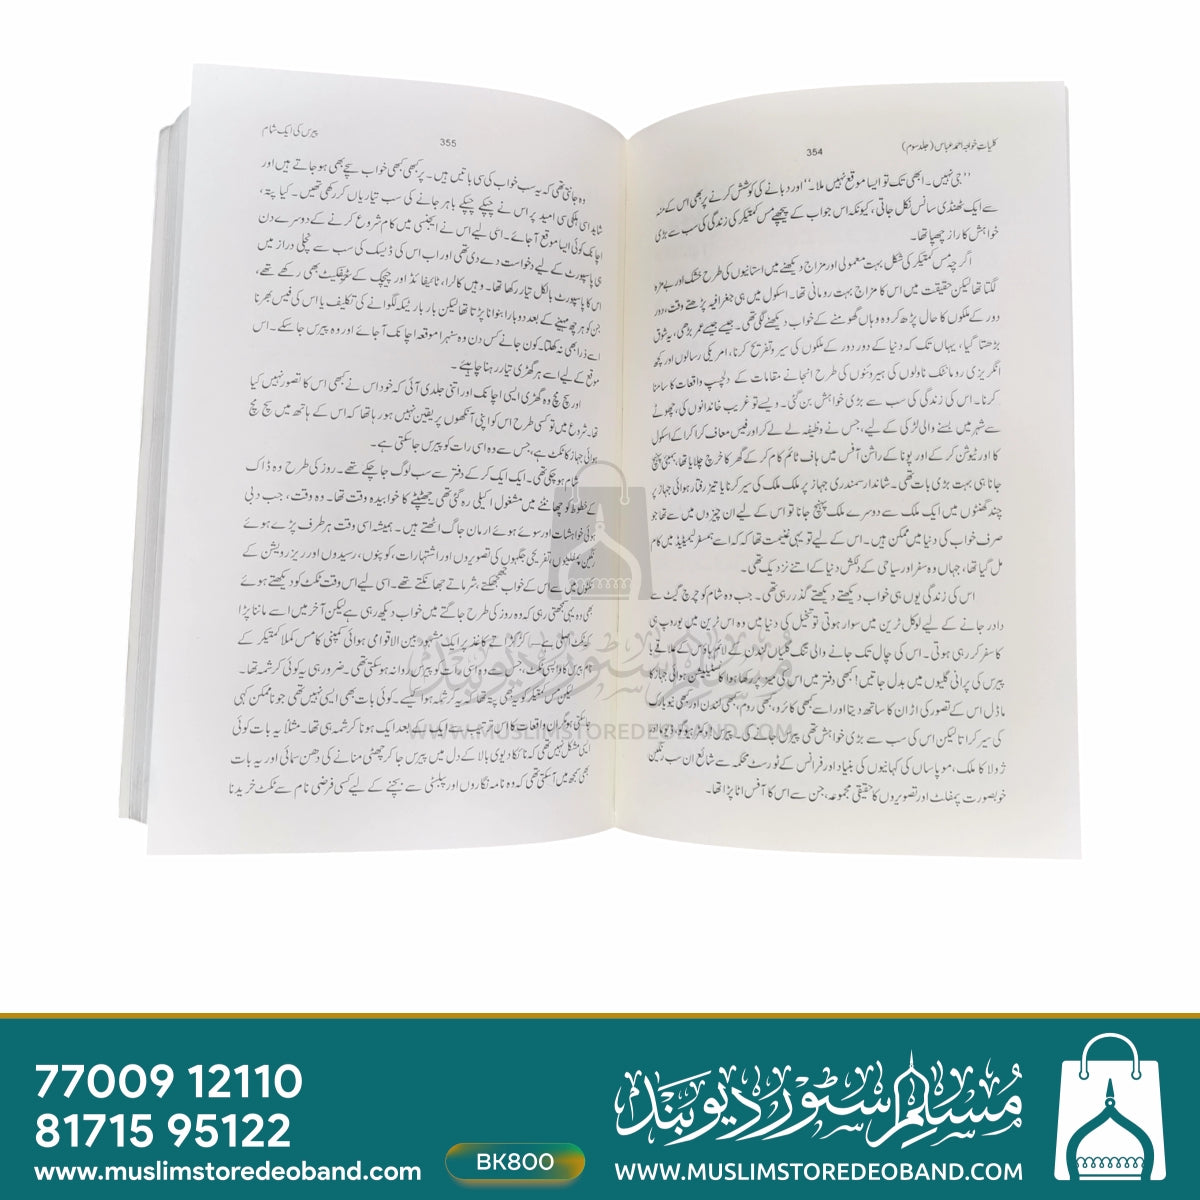 کلیاتِ خواجہ احمد عباس (جلد سوم)
354
’’جی نہیں۔ ابھی تک تو ایسا موقع نہیں ملا۔‘‘ اور دبانے کی کوشش کرنے پر بھی اس کے منہ
سے ایک ٹھنڈی سانس نکل جاتی، کیونکہ اس جواب کے پیچھے مس کمتیکر کی زندگی کی سب سے بڑی
خواہش کا راز چھپا تھا۔
اگرچہ مس کمتیکر کی شکل بہت معمولی اور مزاج دیکھنے میں استانیوں کی طرح خشک اور بے مزہ
لگتا تھا لیکن حقیقت میں اس کا مزاج بہت رومانی تھا۔ اسکول میں ہی جغرافیہ پڑھتے وقت، دور
دور کے ملکوں کا حال پڑھ کر وہ وہاں گھومنے کے خواب دیکھنے لگی تھی۔ جیسے جیسے عمر بڑھی، یہ شوق
بڑھتا گیا، یہاں تک کہ دنیا کے دور دور کے ملکوں کی سیر و تفریح کرنا، امریکی رسالوں اور کچھ
انگریزی رومانٹک ناولوں کی ہیروئنوں کی طرح انجانے مقامات کے دلچسپ واقعات کا سامنا
کرنا۔ اس کی زندگی کی سب سے بڑی خواہش بن گئی۔ ویسے تو غریب خاندانوں کی، چھوٹے
سے شہر میں بسنے والی لڑکی کے لیے، جس نے وظیفہ لے لے کر اور فیس معاف کرا کرا کے اسکول
کا اور ٹیوشن کر کے اور پونا کے راشن آفس میں ہاف ٹائم کام کر کے گھر کا خرچ چلایا تھا، بمبئی پہنچ
جانا ہی بہت بڑی بات تھی۔ شاندار سمندری جہاز پر ملک ملک کی سیر کرنا یا تیز رفتار ہوائی جہاز پر
چند گھنٹوں میں ایک ملک سے دوسرے ملک پہنچ جانا تو اس کے لیے ان چیزوں میں سے تھا جو
صرف خواب کی دنیا میں ممکن ہیں۔ اس کے لیے تو یہی غنیمت تھا کہ اسے ہمسفر لیمیٹیڈ میں کام
مل گیا تھا، جہاں وہ سفر اور سیاحی کے دلکش دنیا کے اتنے نزدیک تھی۔
اس کی زندگی یوں ہی خواب دیکھتے دیکھتے گذر رہی تھی۔ جب وہ شام کو چرچ گیٹ سے
دادر جانے کے لیے لوکل ٹرین میں سوار ہوتی تو تخیل کی دنیا میں وہ اس ٹرین میں یوروپ ہی
کا سفر کر رہی ہوتی۔ اس کی چال تک جانے والی تنگ گلیاں لندن کے لائم ہاؤس کے علاقے یا
پیرس کی پرانی گلیوں میں بدل جاتیں! کبھی دفتر میں اس کی میز پر رکھا ہوا کانسٹیلیشن ہوائی جہاز کا
ماڈل اس کے تصور کی اڑان کا ساتھ دیتا اور اسے کبھی کائرو، کبھی روم، کبھی لندن اور کبھی نیویارک
کی سیر کراتا لیکن اس کی سب سے بڑی خواہش تھی پیرس جانے کی۔ پیرس!
ژولا کا ملک، موپاساں کی کہانیوں کی بنیاد اور فرانس کے ٹورسٹ محکمہ سے شائع ان سب رنگین
خوبصورت پمفلٹ اور تصویروں کا حقیقی مجموعہ، جن سے اس کا آفس اٹا پڑا تھا۔
355
پیرس کی ایک شام
وہ جانتی تھی کہ یہ سب خواب کی سی باتیں ہیں۔ پر کبھی کبھی خواب سچے بھی ہو جاتے ہیں اور
شاید اسی ہلکی سی امید پر اس نے چپکے چپکے باہر جانے کی سب تیاریاں کر رکھی تھیں۔ کیا پتہ،
اچانک کوئی ایسا موقع آ جائے۔ اسی لیے اس نے ایجنسی میں کام شروع کرنے کے دوسرے دن
ہی پاسپورٹ کے لیے دخواست دے دی تھی اور اب اس کی ڈیسک کی سب سے نچلی دراز میں
اس کا پاسپورٹ بالکل تیار رکھا تھا۔ وہیں کالرا، ٹائیفائڈ اور چیچک کے سٹیفکیٹ بھی رکھے تھے،
جن کو ہر چھ مہینے کے بعد دوبارہ بنوانا پڑتا تھا لیکن بار بار ٹیکہ لگوانے کی تکلیف یا اس کی فیس بھرنا
اسے ذرا بھی نہ کھلتا۔ کون جانے کس دن وہ سنہرا موقعہ اچانک آ جائے اور وہ پیرس جا سکے۔ اس
موقع کے لیے اسے ہر گھڑی تیار رہنا چاہیئے۔
اور سچ مچ وہ گھڑی ایسی اچانک اور اتنی جلدی آئی کہ خود اس نے کبھی اس کا تصور نہیں کیا
تھا۔ شروع میں تو کسی طرح اس کو اپنی آنکھوں پر یقین نہیں ہو رہا تھا کہ اس کے ہاتھ میں سچ مچ
ہوائی جہاز کا ٹکٹ ہے، جس سے وہ اسی رات کو پیرس جا سکتی ہے۔
شام ہو چکی تھی۔ ایک ایک کر کے دفتر سے سب لوگ جا چکے تھے۔ روز کی طرح وہ ڈاک
کے خطوط کو چھانٹنے میں مشغول اکیلی رہ گئی تھی جھٹپٹے کا خوابیدہ وقت تھا۔ وہ وقت، جب دبی
ہوئی خواہشات اور سوئے ہوئے ارمان جاگ اٹھتے ہیں۔ ہمیشہ اسی وقت ہر طرف پڑے ہوئے
رنگین پمفلیوں، تفریحی جگہوں کی تصویروں اور اشتہارات، کوپنوں، رسیدوں اور ریزرویشن کے
ٹکٹوں میں سے اس کے خواب جھجھکتے، شرماتے جھانکتے تھے۔ اسی لیے اس وقت ٹکٹ کو دیکھتے ہوئے
بھی وہ یہی سمجھتی رہی کہ وہ روز کی طرح جاگتے میں خواب دیکھ رہی ہے لیکن آخر میں اسے ماننا پڑا
کہ ٹکٹ اصلی ہے۔ کڑکڑاتے کاغذ پر ایک مشہور بین الاقوامی ہوائی کمپنی کا مس کملا کمتیکر کے
نام پیرس کا واپسی ٹکٹ، جس سے وہ اسی رات کو پیرس روانہ ہو سکتی تھی۔ ضرور ہی یہ کوئی کرشمہ تھا۔
لیکن مس کمتیکر کو یہ بھی پتہ تھا کہ یہ کرشمہ ہوا کیسے۔ کوئی بات بھی ایسی نہیں تھی جو ناممکن کہی
جا سکتی ہو مگر ان واقعات کا اس ترتیب سے ایک کے بعد ایک ہونا کرشمہ ہی تھا۔ مثلاً یہ بات کوئی
ایسی مشکل نہیں تھی کہ نانکا دیوی بالا کے دل میں پیرس جا کر چھٹی منانے کی دھن سمائی اور یہ بات
بھی سمجھ میں آ سکتی تھی کہ وہ نامہ نگاروں اور پبلسٹی سے بچنے کے لیے کسی فرضی نام سے ٹکٹ خریدنا
مسلم سٹور دیوبند
WWW.MUSLIMSTOREDEOBAND.COM
77009 12110
81715 95122
www.muslimstoredeoband.com
BK800
مسلم سٹور دیوبند
WWW.MUSLIMSTOREDEOBAND.COM